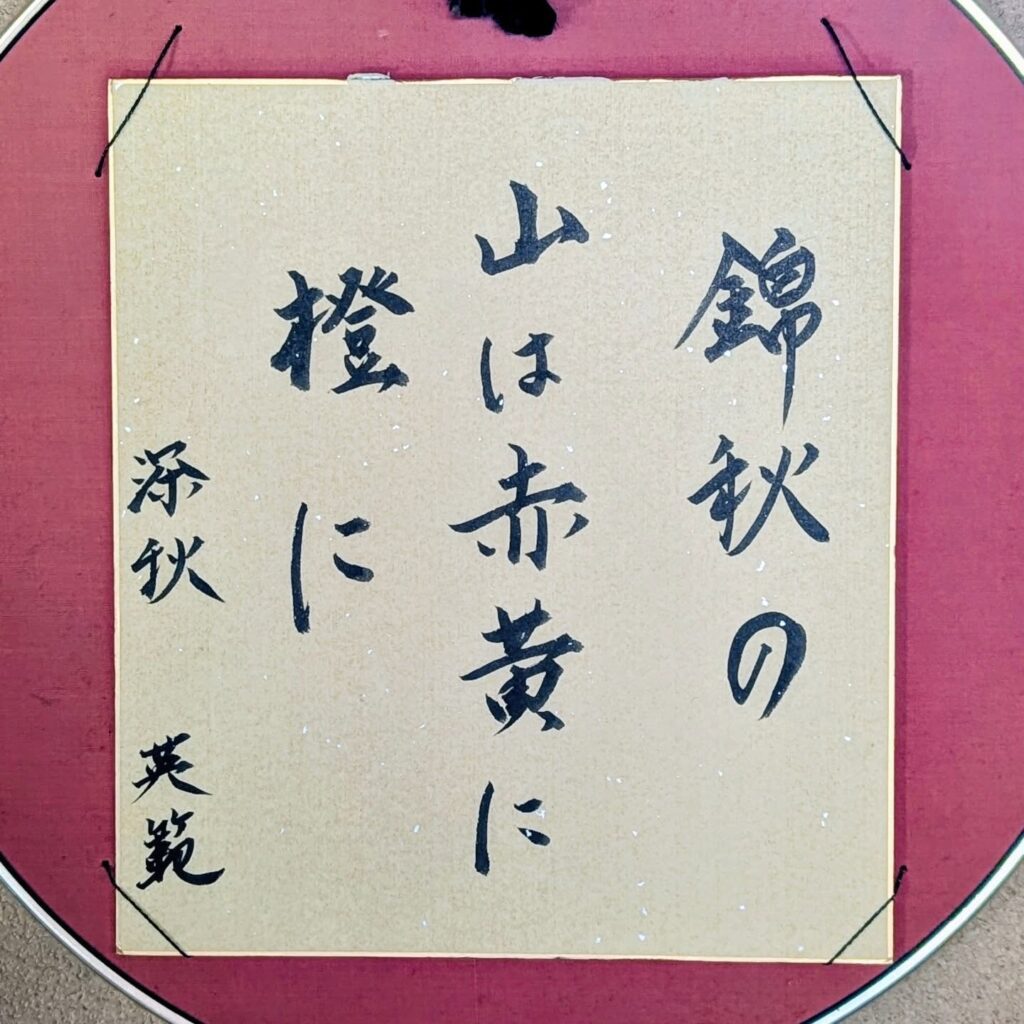 錦秋の
山は赤黄に
橙に
深秋 英範